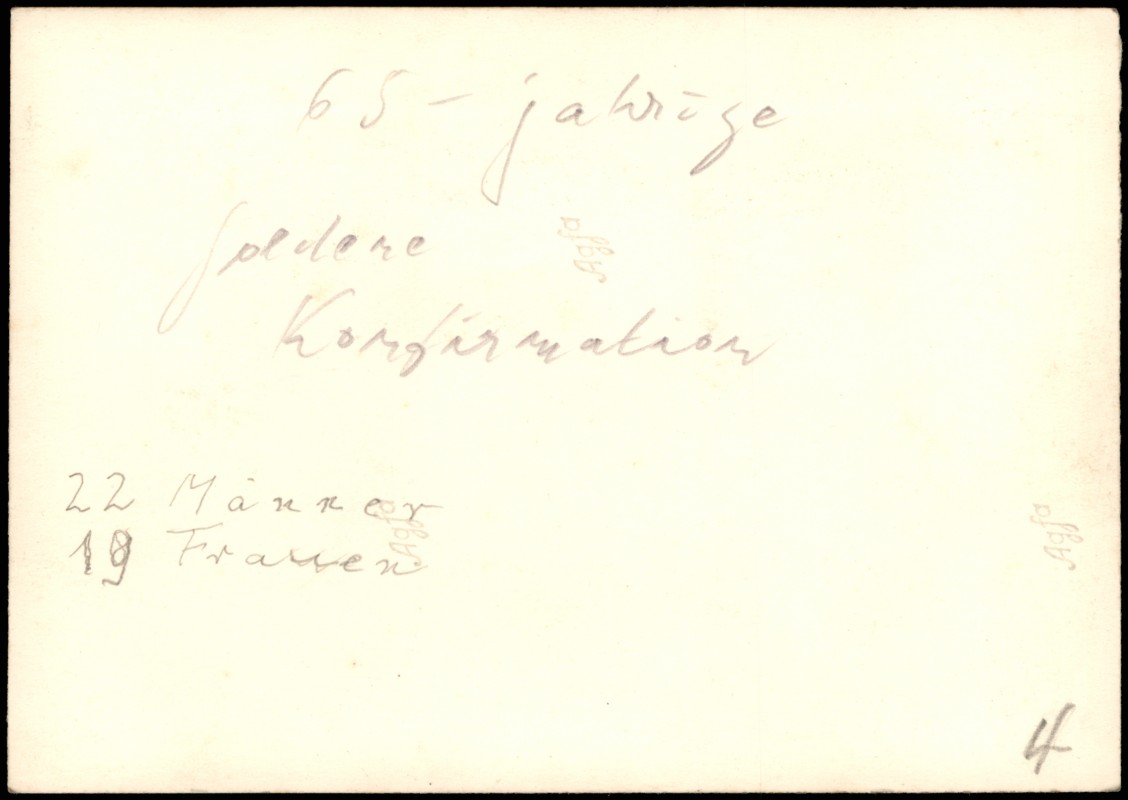 65 - jahrige
goldene
Agfa
Konfirmation
22 Männer
19 Frauen
Agfa
Agfa
4